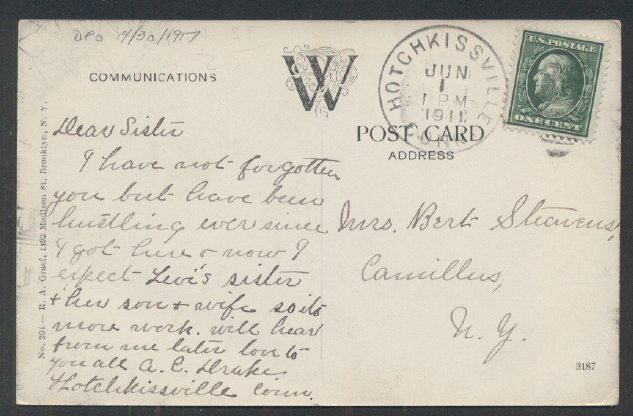 DPO 4/30/1917
COMMUNICATIONS
W
HOTCHKISSVILLE
JUN
1
1 PM
1911
CONN.
U.S. POSTAGE
ONE CENT
POST CARD
ADDRESS
Dear Sister
I have not forgotten
you but have been
hustling ever since
I got here & now I
expect Levi's sister
& her son & wife so its
more work. will hear
from me later love to
you all A. E. Drake
Hotchkissville Conn.
Mrs. Bert Steavens,
Camillus,
N. Y.
No. 201 — R. A. Graef, 1492 Madison St. Brooklyn, N. Y.
3187